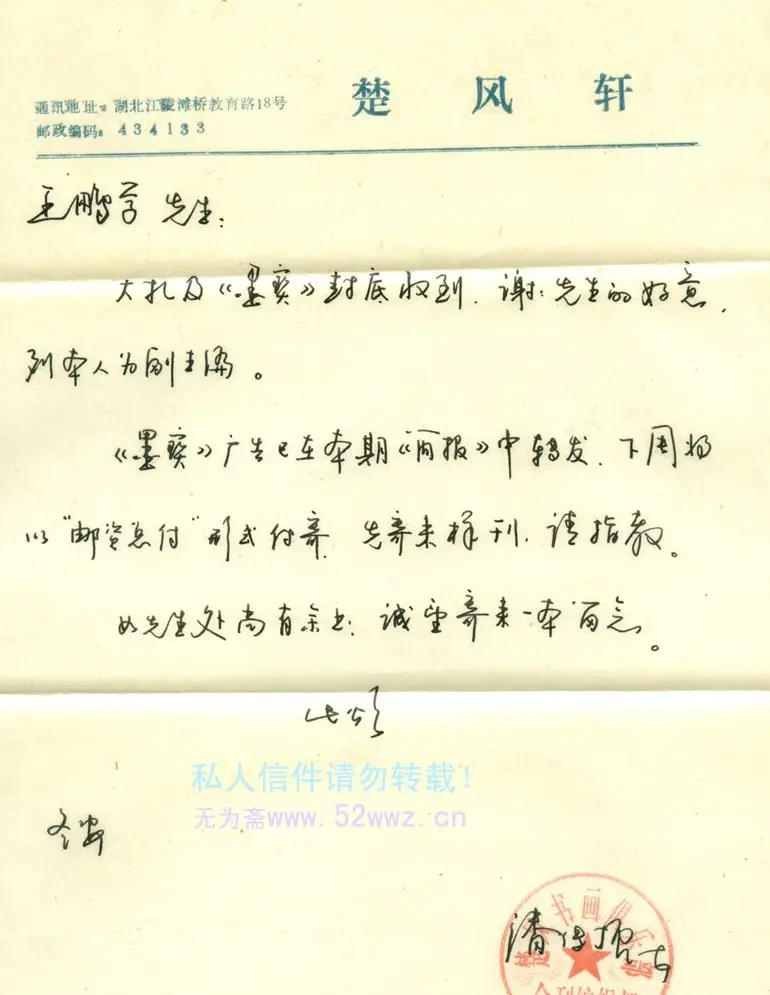 楚风轩
通讯地址：湖北江陵滩桥教育路18号
邮政编码：434133
王鹏学 先生：
大扎及《墨宝》封底收到，谢谢先生的好意，
列本人为副主编。
《墨宝》广告已在本期《简报》中转发，下周将
以“邮资总付”形式付寄，先寄来样刊，请指教。
如先生处尚有余书，诚望寄来一本留念。
此颂
私人信件请勿转载！
无为斋www.52wwz.cn
冬安
书画
潘传